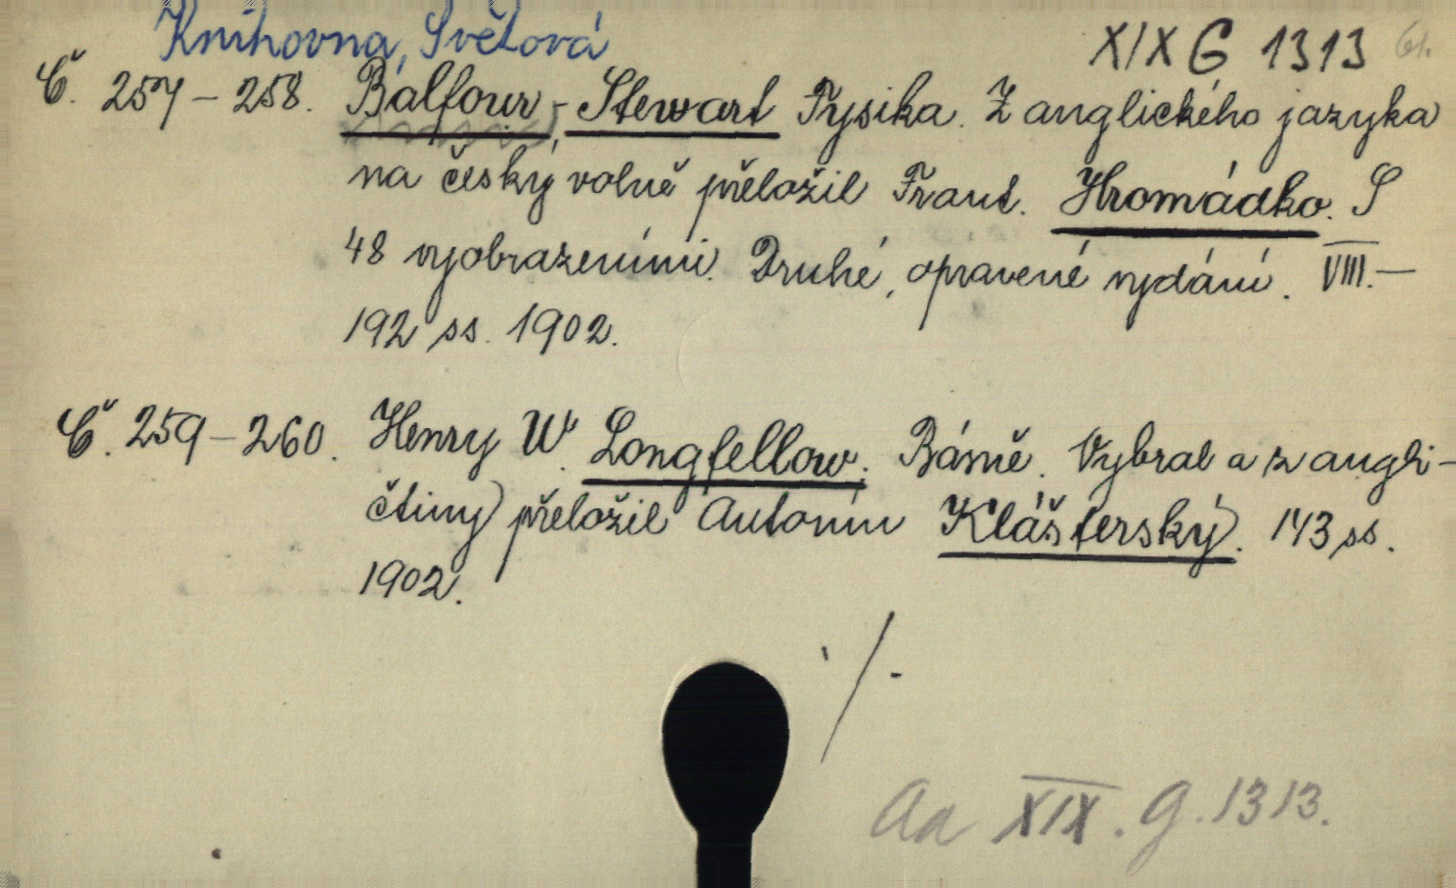 Knihovna, Světová
XIX G 1313 61.
Č. 257-258. Balfour-Stewart Fysika. Z anglického jazyka
na český volně přeložil Frant. Hromádko. S
48 vyobrazeními. Druhé, opravené vydání. VIII.—
192 ss. 1902.
Č. 259-260. Henry W. Longfellow. Básně. Vybral a z angli-
čtiny přeložil Antonín Klášterský. 143 ss.
1902.
./.
Aa XIX. G. 1313.